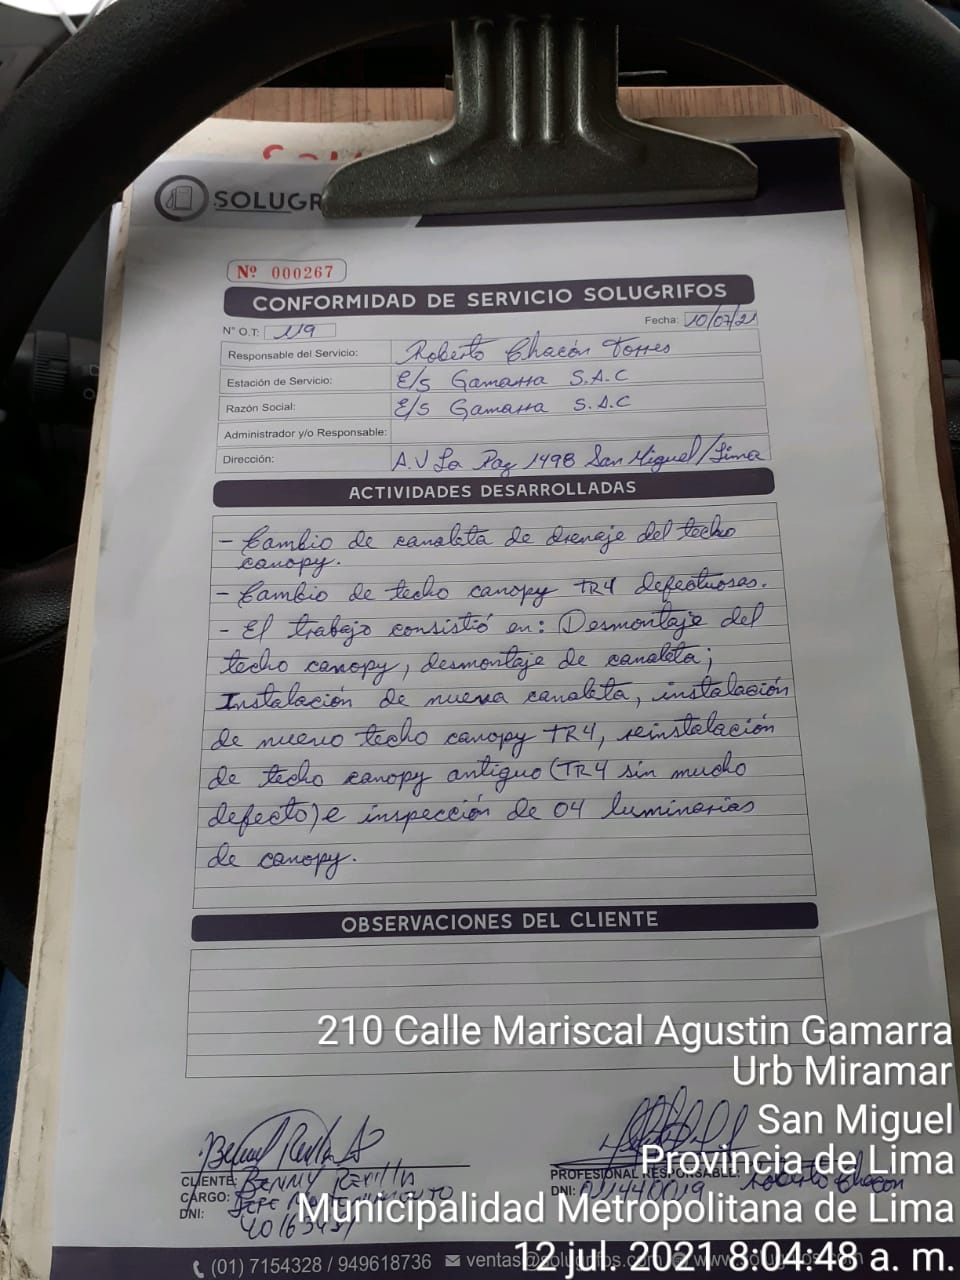 SOLUGR
Nº 000267
CONFORMIDAD DE SERVICIO SOLUGRIFOS
N° O.T: 119
Fecha: 10/07/21
Responsable del Servicio: Roberto Chacón Torres
Estación de Servicio: E/S Gamarra S.A.C
Razón Social: E/S Gamarra S.A.C
Administrador y/o Responsable:
Dirección: A.V La Paz 1498 San Miguel/Lima
ACTIVIDADES DESARROLLADAS
- Cambio de canaleta de drenaje del techo
canopy.
- Cambio de techo canopy TR4 defectuosas.
- El trabajo consistió en: Desmontaje del
techo canopy, desmontaje de canaleta;
Instalación de nueva canaleta, instalación
de nuevo techo canopy TR4, reinstalación
de techo canopy antiguo (TR4 sin mucho
defecto) e inspección de 04 luminarias
de canopy.
OBSERVACIONES DEL CLIENTE
CLIENTE: BENNY REVILLA
CARGO: JEFE
DNI:
PROFESIONAL RESPONSABLE: Roberto Chacon
DNI:
(01) 7154328 / 949618736 ventas@solugrifos.com
210 Calle Mariscal Agustin Gamarra
Urb Miramar
San Miguel
Provincia de Lima
Municipalidad Metropolitana de Lima
12 jul. 2021 8:04:48 a. m.